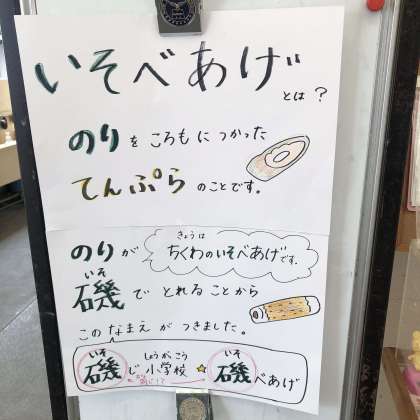 いそべあげ
とは？
のりをころもにつかった
てんぷらのことです。
きょうは
のりが ちくわのいそべあげです。
いそ
磯でとれることから
このなまえがつきました。
いそ しょうがっこう いそ
磯じ小学校 磯べあげ